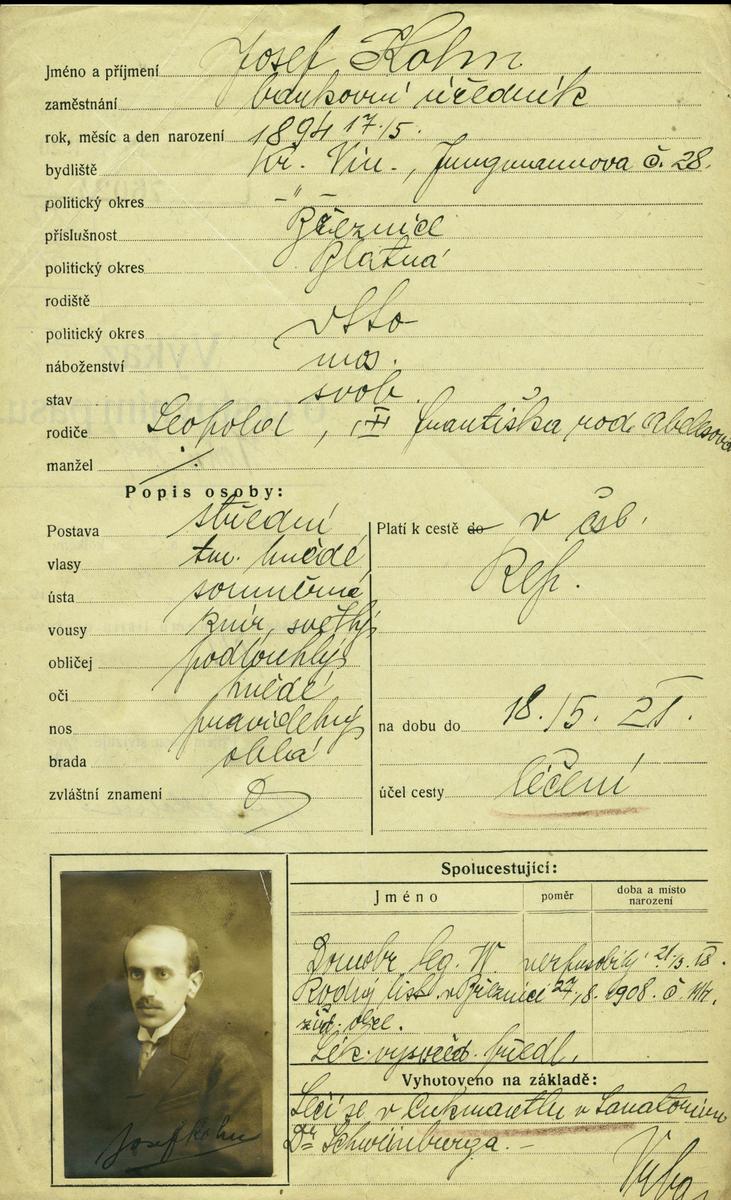 Jméno a příjmení Josef Kohn
zaměstnání bankovní úředník
rok, měsíc a den narození 1894 17./5.
bydliště Kr. Vin., Jungmannova č. 28.
politický okres - " -
příslušnost Březnice
politický okres Blatná
rodiště
politický okres
náboženství mos.
stav svob.
rodiče Leopold, Františka rod. Abelesová
manžel ·/·
Popis osoby:
Postava střední
vlasy tm. hnědé
ústa souměrná
vousy knír světlý
obličej podlouhlý
oči hnědé
nos pravidelný
brada oblá
zvláštní znamení
Platí k cestě do v čsl.
Rep.
na dobu do 18./5. 21.
účel cesty léčení
Spolucestující:
Jméno poměr doba a místo narození
Domobr. leg. 21/3. 18.
Rodný list v Březnici 27/8. 1908. č.
žid. obce.
Lék. vysvěd. předl.
Vyhotoveno na základě:
Léčí se v Cukmantlu v Sanatorium
Dra Schweinburga. -
Josef Kohn